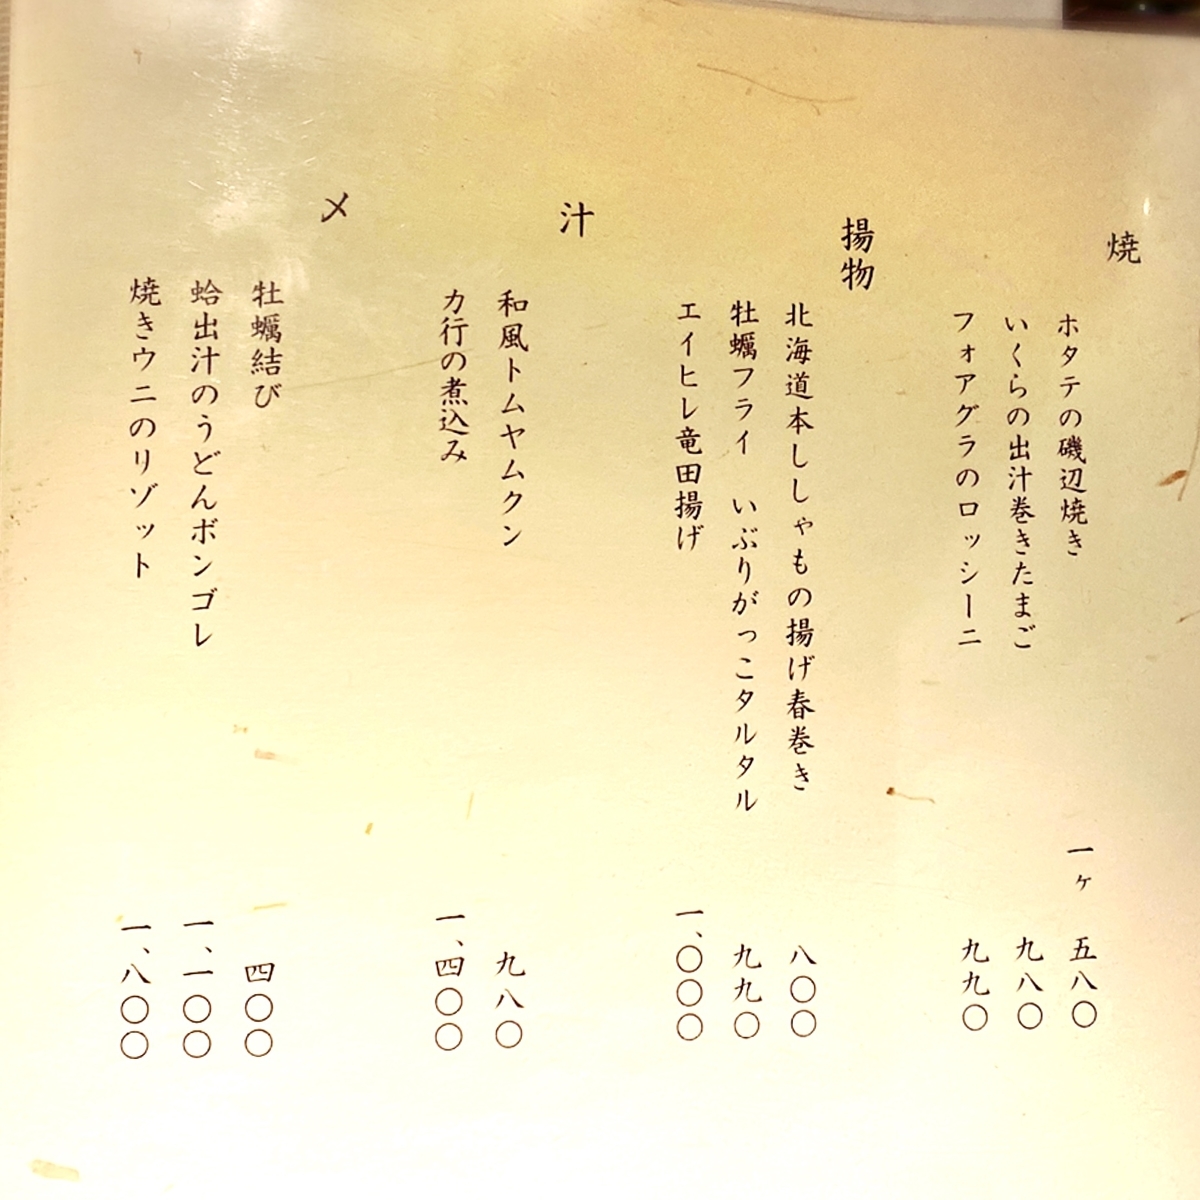 焼
ホタテの磯辺焼き 一ヶ 五八〇
いくらの出汁巻きたまご 九八〇
フォアグラのロッシーニ 九九〇
揚物
北海道本ししゃもの揚げ春巻き 八〇〇
牡蠣フライ いぶりがっこタルタル 九九〇
エイヒレ竜田揚げ 一、〇〇〇
汁
和風トムヤムクン 九八〇
カ行の煮込み 一、四〇〇
〆
牡蠣結び 四〇〇
蛤出汁のうどんボンゴレ 一、一〇〇
焼きウニのリゾット 一、八〇〇